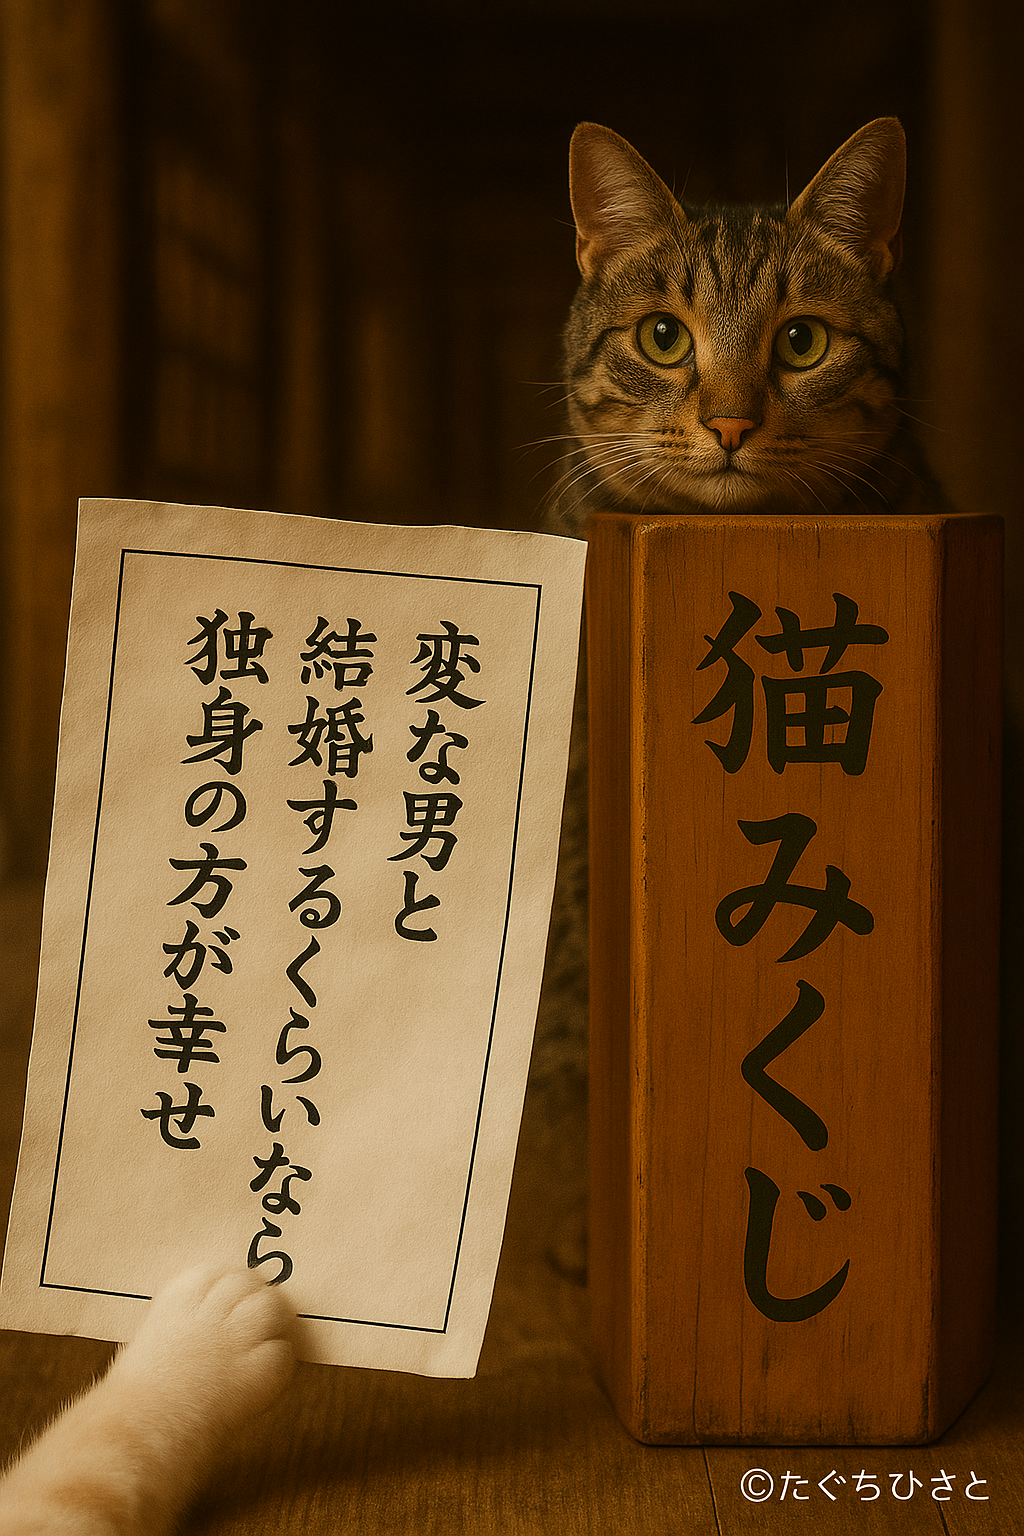 変な男と
結婚するくらいなら
独身の方が幸せ
猫みくじ
©たぐちひさと